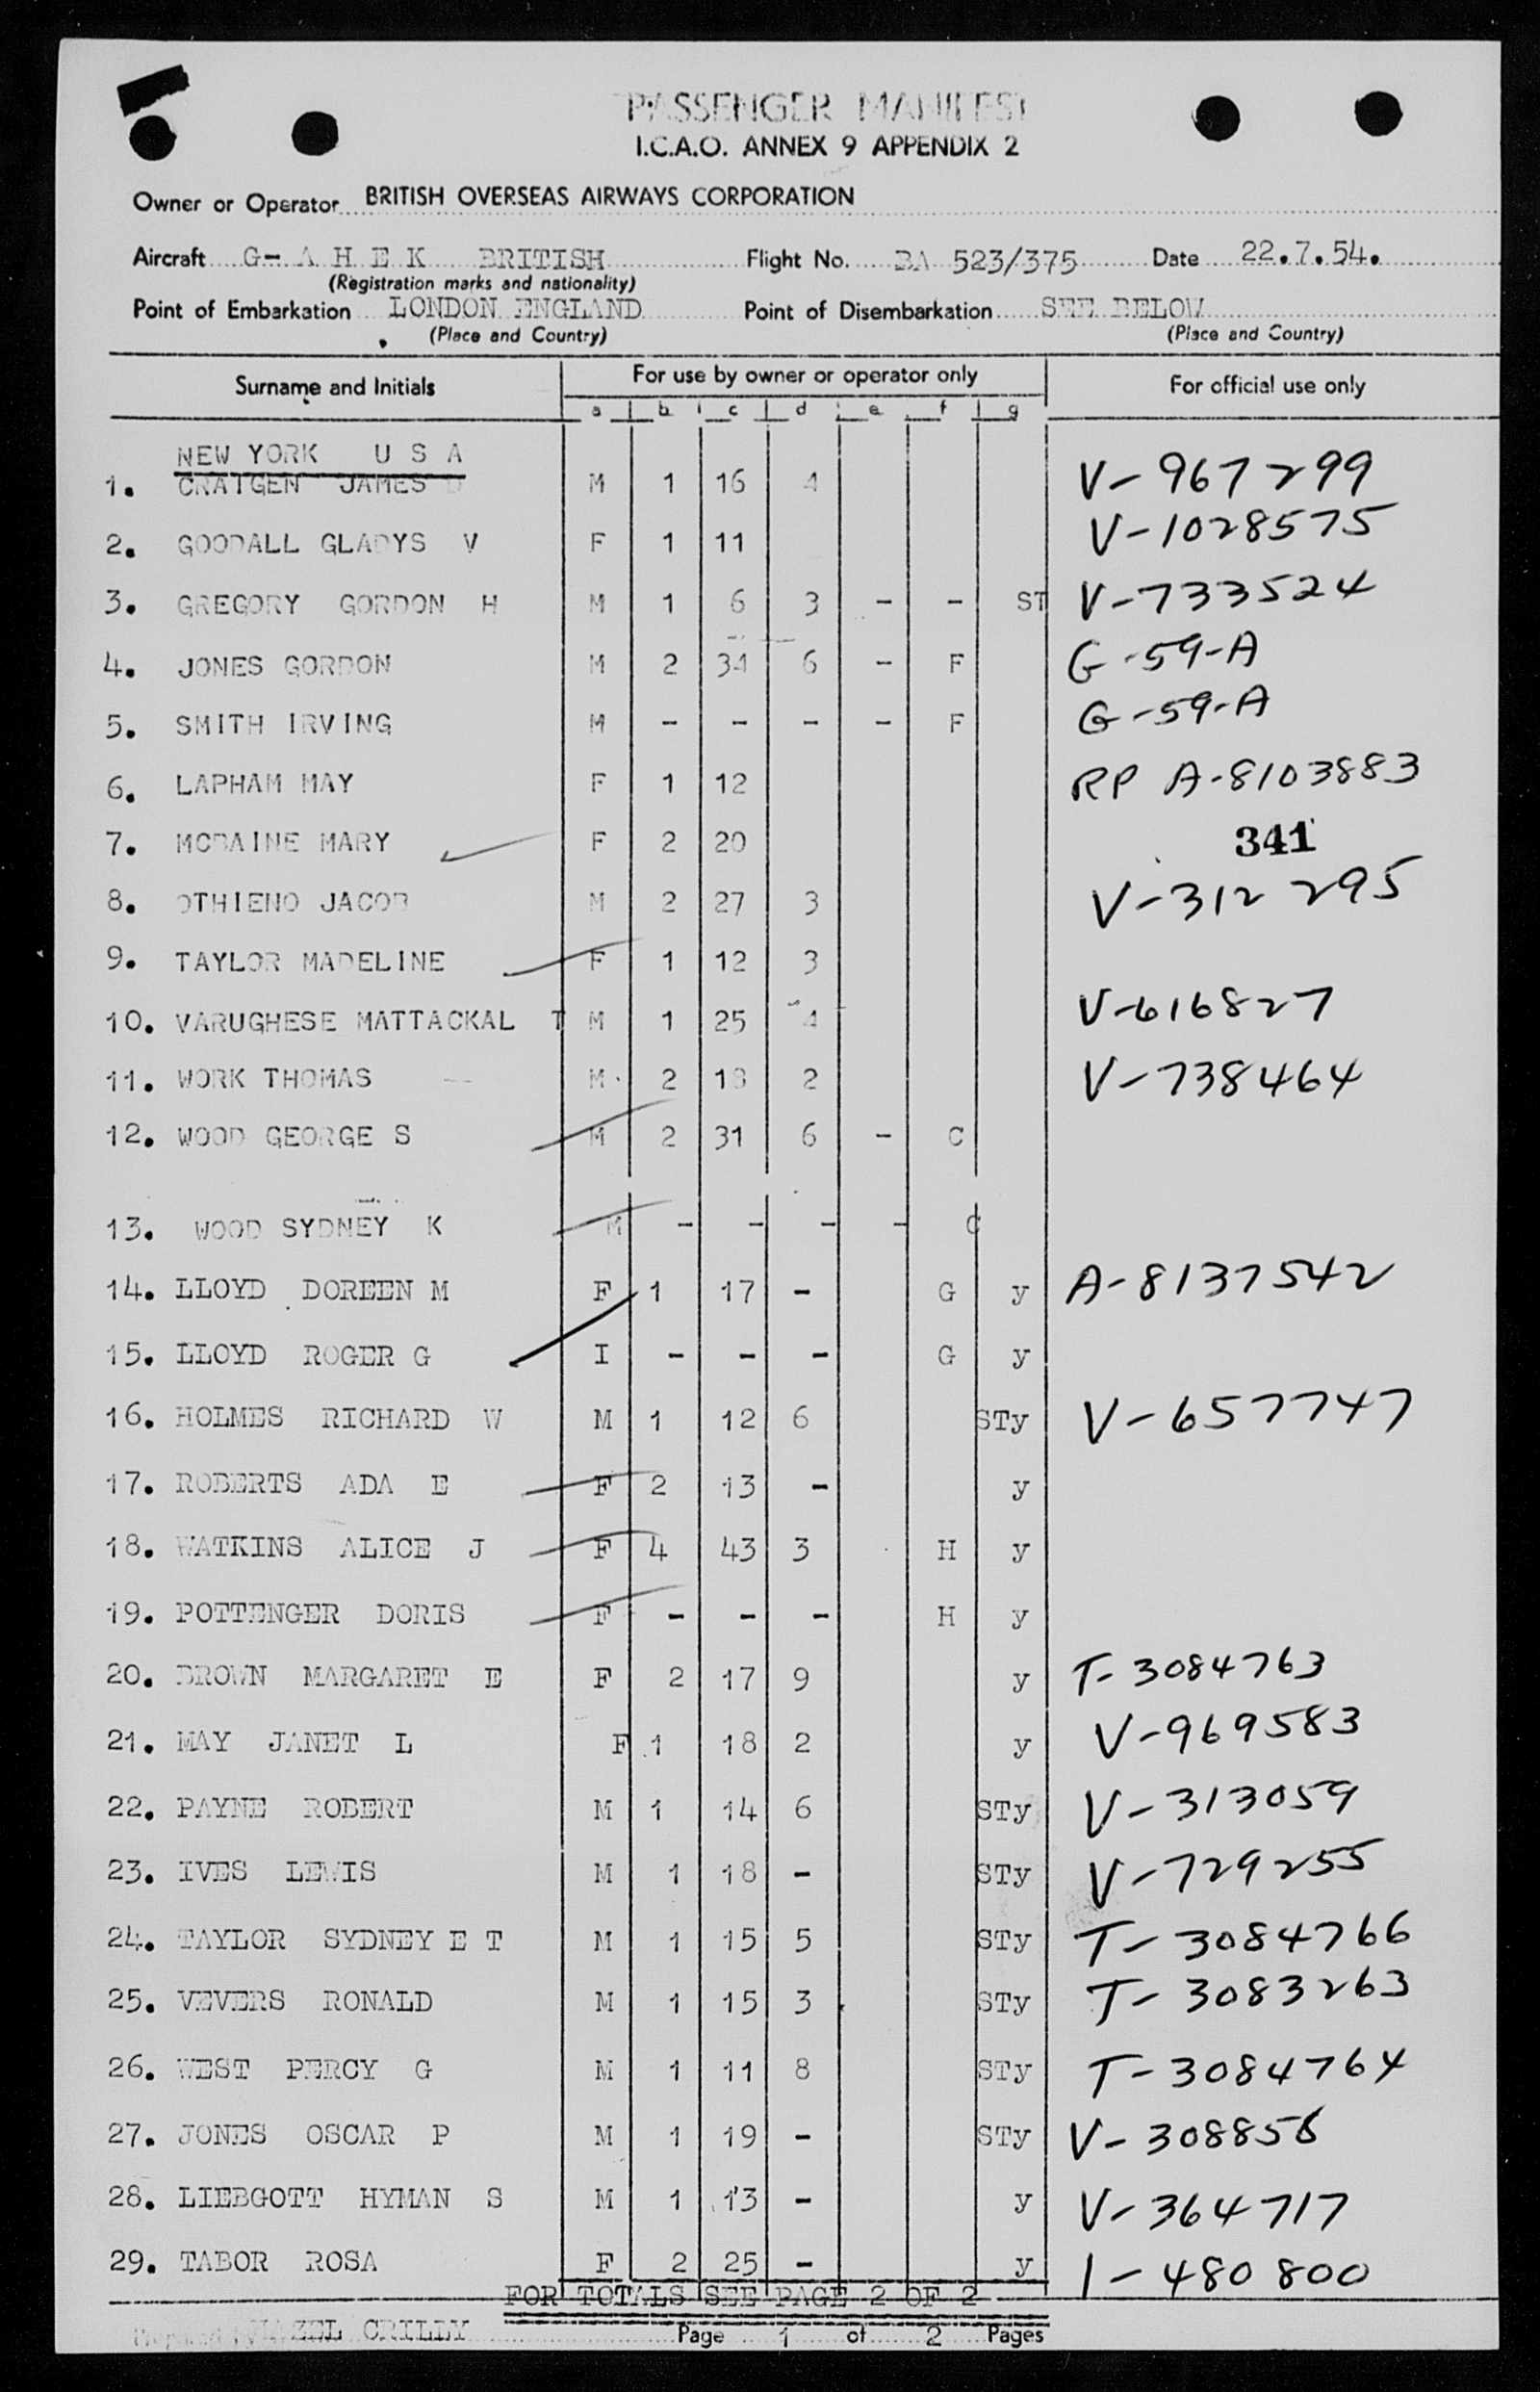 PASSENGER MANIFEST
I.C.A.O. ANNEX 9 APPENDIX 2
Owner or Operator BRITISH OVERSEAS AIRWAYS CORPORATION
Aircraft G- A H E K BRITISH Flight No. BA 523/375 Date 22.7.54.
(Registration marks and nationality)
Point of Embarkation LONDON ENGLAND Point of Disembarkation SEE BELOW
(Place and Country) (Place and Country)
Surname and Initials For use by owner or operator only For official use only
a b c d e f g
NEW YORK U S A
1. CRAIGEN JAMES D M 1 16 4 V-967299
2. GOODALL GLADYS V F 1 11 V-1028575
3. GREGORY GORDON H M 1 6 3 - - ST V-733524
4. JONES GORDON M 2 34 6 - F G-59-A
5. SMITH IRVING M - - - - F G-59-A
6. LAPHAM MAY F 1 12 RP A-8103883
7. MCBAINE MARY F 2 20 341
8. OTHIENO JACOB M 2 27 3 V-312295
9. TAYLOR MADELINE F 1 12 3
10. VARUGHESE MATTACKAL T M 1 25 4 V-616827
11. WORK THOMAS M 2 18 2 V-738464
12. WOOD GEORGE S M 2 31 6 - C
13. WOOD SYDNEY K M - - - - C
14. LLOYD DOREEN M F 1 17 - G y A-8137542
15. LLOYD ROGER G I - - - G y
16. HOLMES RICHARD W M 1 12 6 STy V-657747
17. ROBERTS ADA E F 2 13 - y
18. WATKINS ALICE J F 4 43 3 H y
19. POTTENGER DORIS F - - - H y
20. BROWN MARGARET E F 2 17 9 y T-3084763
21. MAY JANET L F 1 18 2 y V-969583
22. PAYNE ROBERT M 1 14 6 STy V-313059
23. IVES LEWIS M 1 18 - STy V-729255
24. TAYLOR SYDNEY E T M 1 15 5 STy T-3084766
25. VEVERS RONALD M 1 15 3 STy T-3083263
26. WEST PERCY G M 1 11 8 STy T-3084764
27. JONES OSCAR P M 1 19 - STy V-308856
28. LIEBGOTT HYMAN S M 1 13 - y V-364717
29. TABOR ROSA F 2 25 - y 1-480800
FOR TOTALS SEE PAGE 2 OF 2
Prepared by HAZEL CRILLY Page 1 of 2 Pages